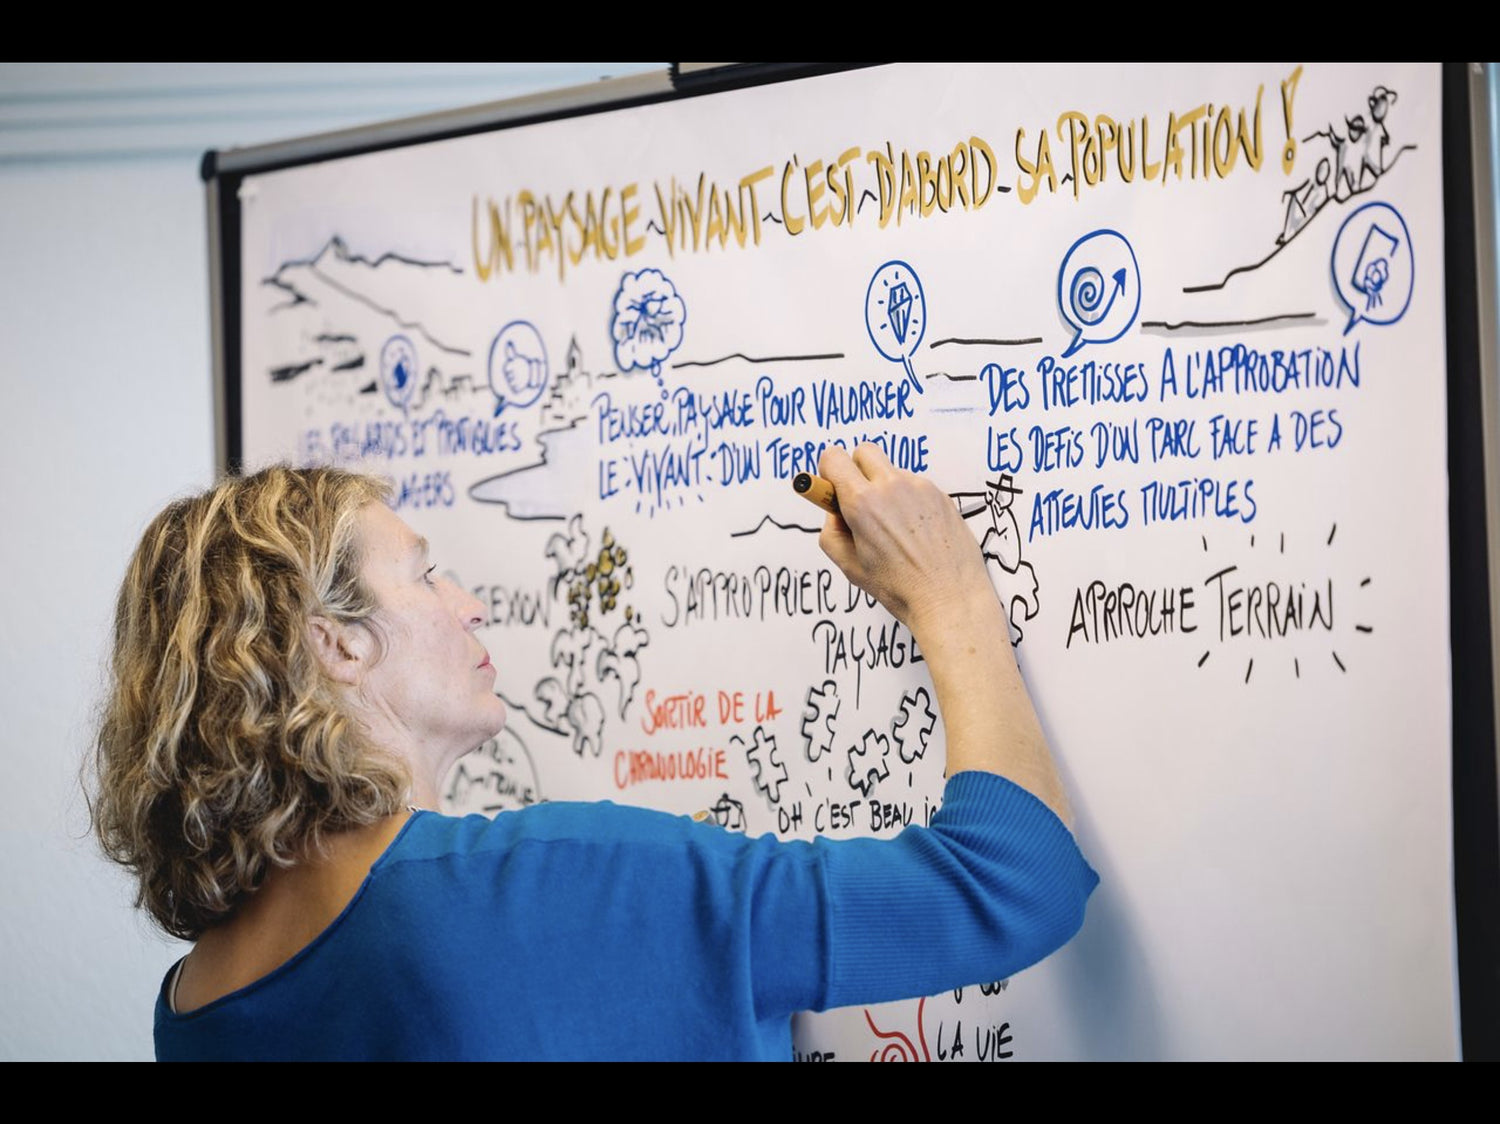 UN PAYSAGE VIVANT C'EST D'ABORD SA POPULATION !
LES REGARDS ET PRATIQUES
PENSER PAYSAGE POUR VALORISER
LE VIVANT D'UN TERROIR
DES PREMISSES A L'APPROBATION
LES DEFIS D'UN PARC FACE A DES
ATTENTES MULTIPLES
S'APPROPRIER
PAYSAGE
APRROCHE TERRAIN
SORTIR DE LA
CHRONOLOGIE
OH C'EST BEAU
LA VIE